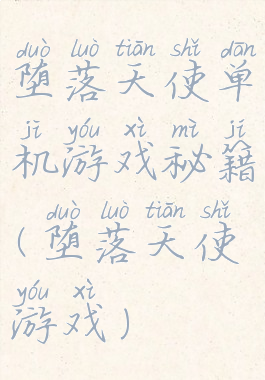 duò luò tiān shǐ dān
堕落天使单
jī yóu xì mì jí
机游戏秘籍
duò luò tiān shǐ
(堕落天使
yóu xì
游戏)